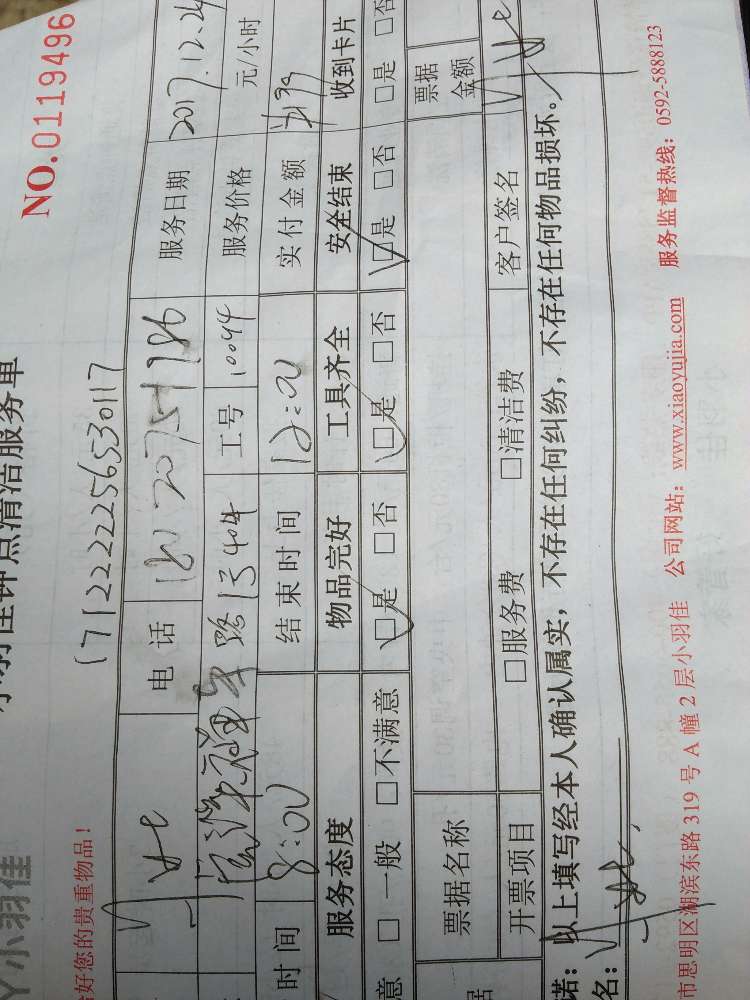 小羽佳
小羽佳钟点清洁服务单
NO.0119496
好您的贵重物品！
1712222256530117
电话 服务日期 2017.12.24
13404 工号 10044 服务价格 元/小时
时间 8:00 结束时间 12:00 实付金额
服务态度 物品完好 工具齐全 安全结束 收到卡片
意 □一般 □不满意 □是 □否 □是 □否 □是 □否 □是 □否
票据名称 票据金额
开票项目 □服务费 □清洁费 客户签名
诺：以上填写经本人确认属实，不存在任何纠纷，不存在任何物品损坏。
名：
市思明区湖滨东路319号A幢2层小羽佳 公司网站：www.xiaoyujia.com 服务监督热线：0592-5888123